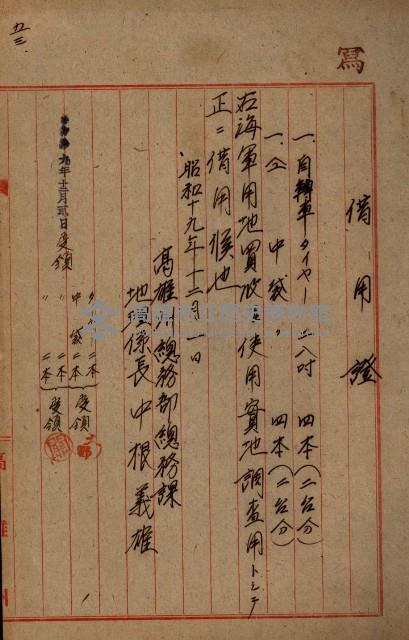 寫
借用證
一、自轉車タイヤー 二八吋 四本(二台分)
一、仝 中袋 四本(二台分)
右海軍用地買收 使用實地調査用トシテ
正ニ借用候也
昭和十九年十二月一日
高雄 總務部總務課
地 係長 中根義雄
九年十二月貳日受領
タイヤ 二本 受領
中袋 二本
〃 二本 受領
〃 二本
五三
高雄州